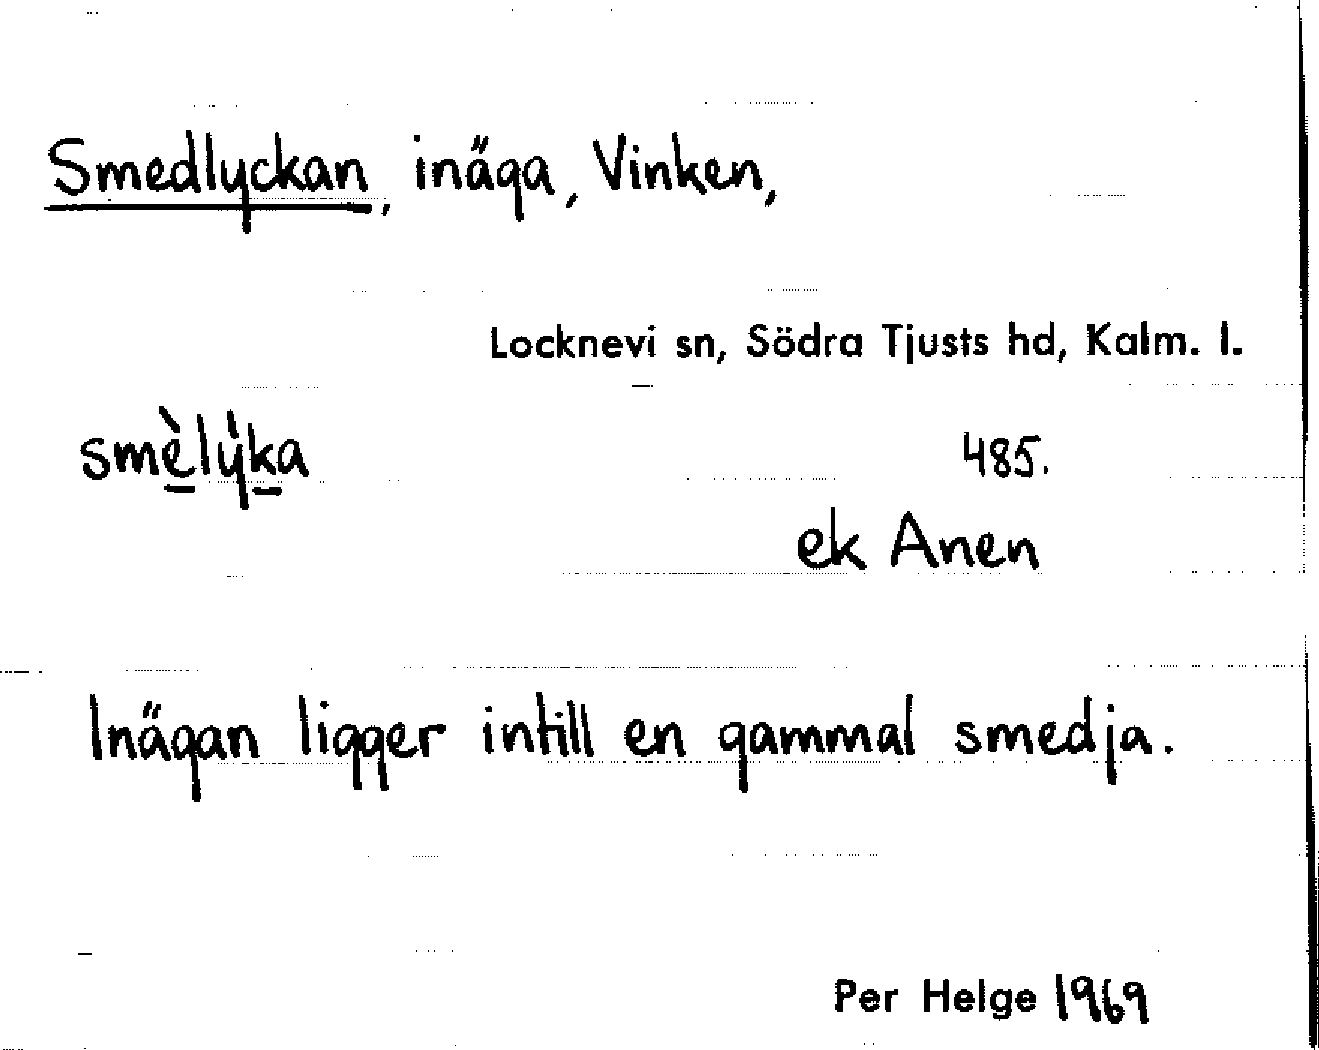 Smedlyckan, inäga, Vinken,
Locknevi sn, Södra Tjusts hd, Kalm. l.
smè̱lýḵa
485.
ek Anen
Inägan ligger intill en gammal smedja.
Per Helge 1969